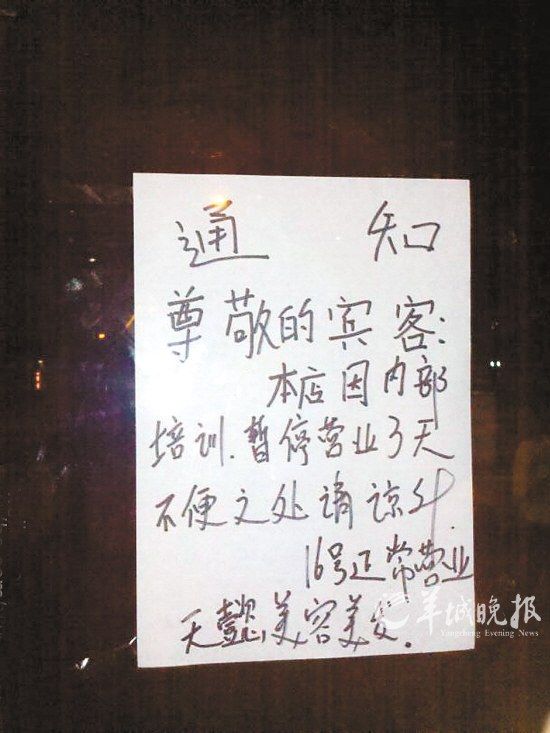 通 知
尊敬的宾客:
本店因内部
培训.暂停营业3天
不便之处请谅解.
16号正常营业
天懿美容美发.
羊城晚报
Yangcheng Evening News